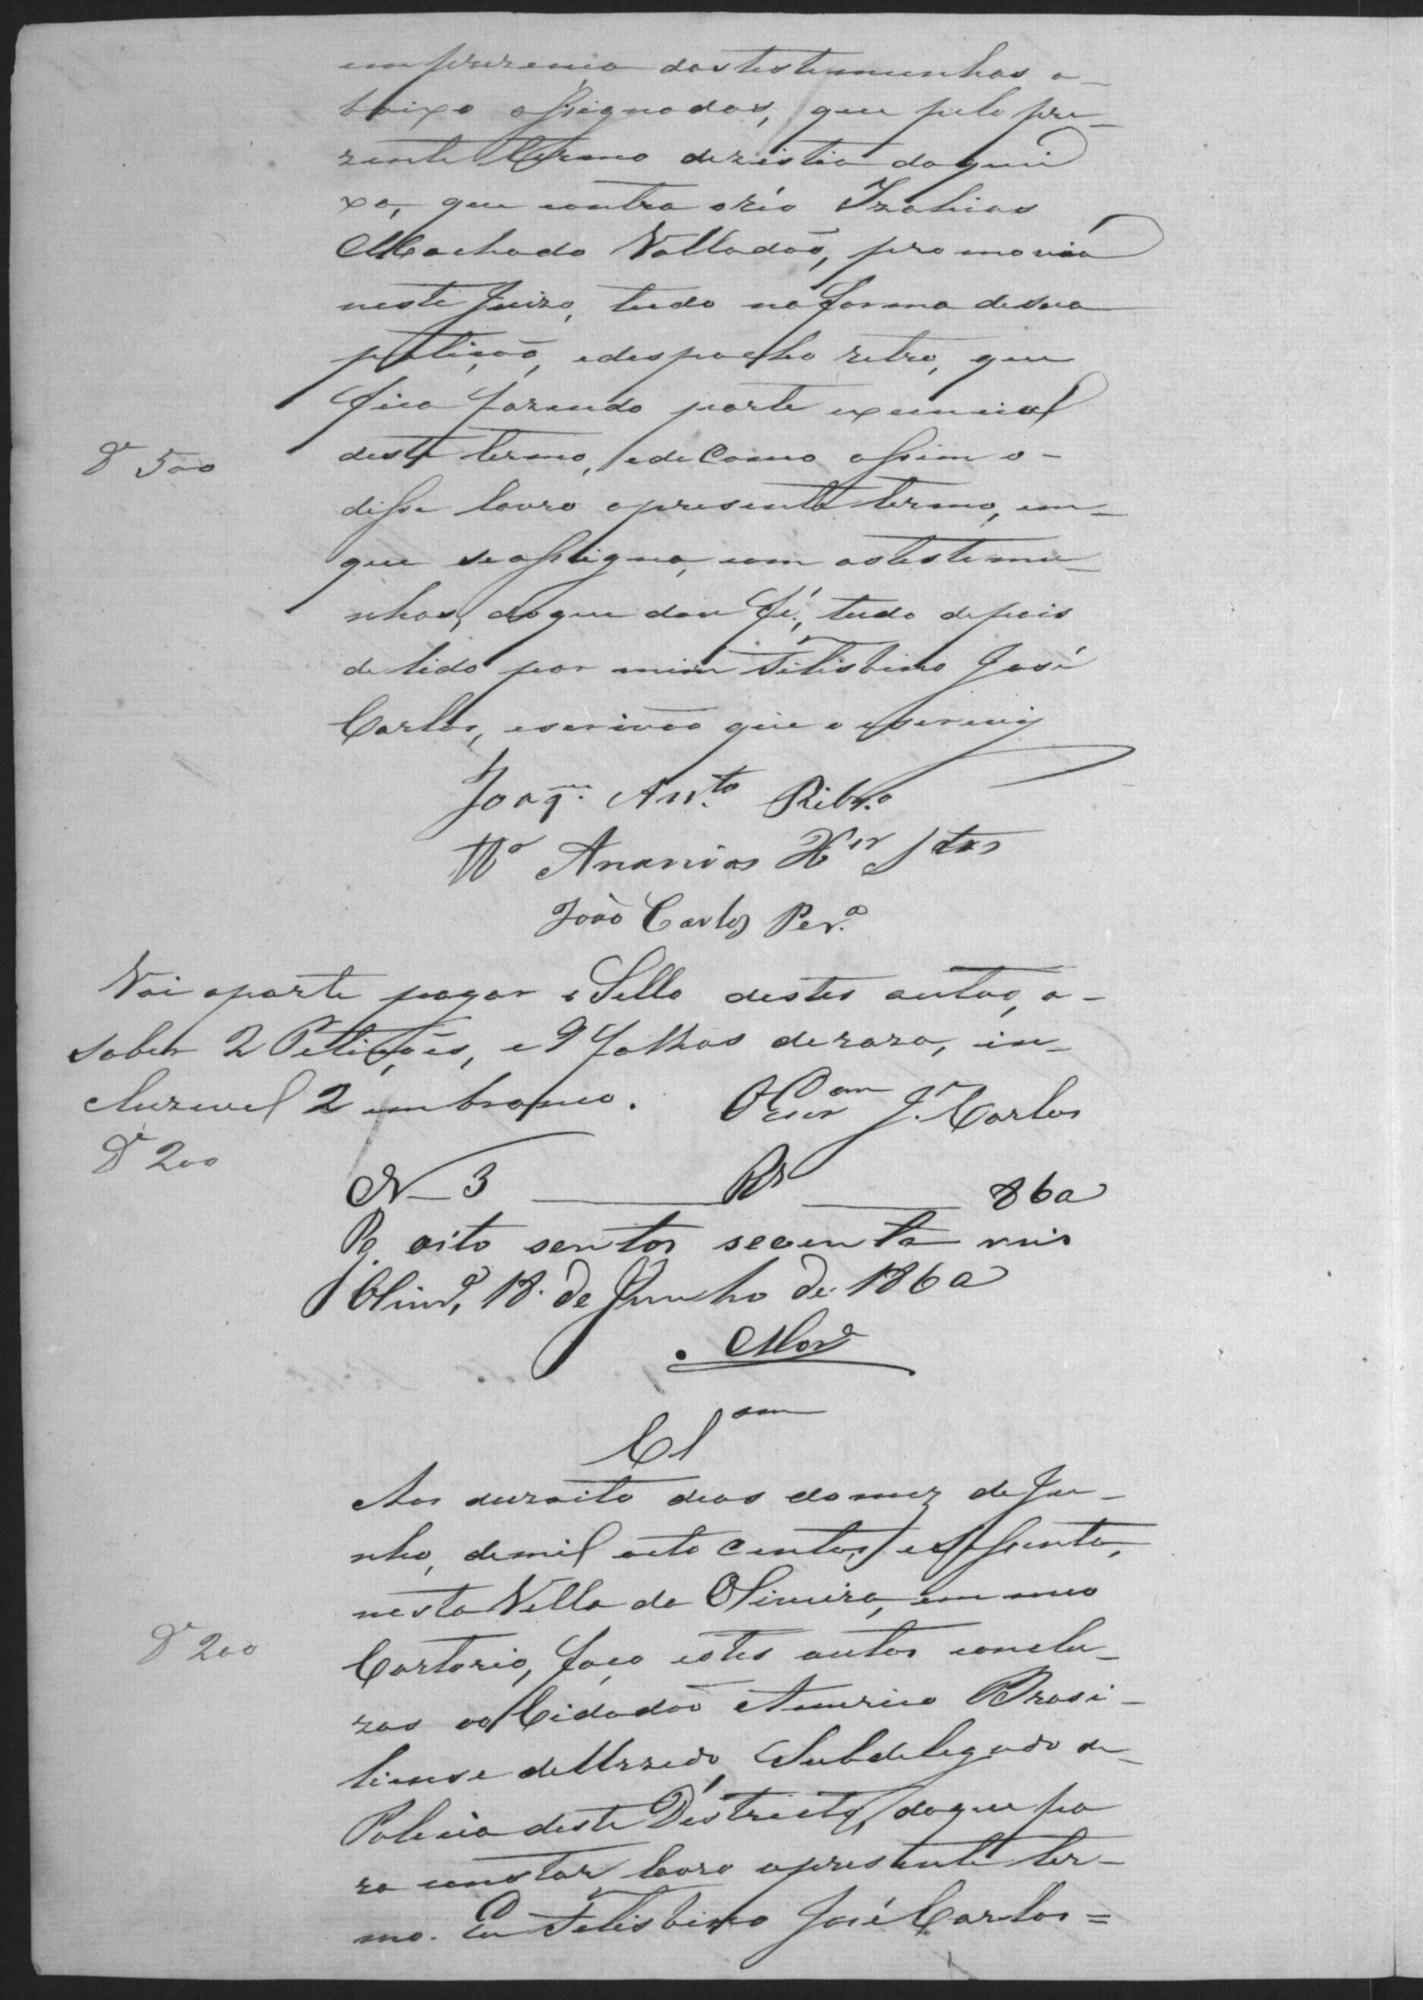 em prezença das testemunhas a-
baixo assignadas, que pelo pre-
zente termo dezistia da quei
xa, que contra o réo Izahias
Machado Valladão, promovia
neste Juizo, tudo na forma de sua
petição, e despacho retro, que
fica fazendo parte exencial
deste termo, e de como assim o-
D.e 500
disse lavro o presente termo, em-
que se assigna, com as testemu-
nhas, do que dou fé, tudo depois
de lido por mim Felisbino José
Carlos, escrivão que o escrevy
Joaq.m Ant.to Ribr.o
Ananias
João Carlos Per.a
Vai a parte pagar o Sello destes autos, a-
saber 2 Petições, e 9 folhas de raza, in-
cluzivel 2 em branco. O Escr.am J. Carlos
D.e 200
N 3 Rs 860
Pg oito sentos secenta reis
Oliv.a, 18 de Junho de 1860
Cl.am
Aos dezoito dias do mez de Ju-
nho, de mil oito centos e sessenta,
nesta Villa da Oliveira, em meu
D.e 200
Cartorio, faço estes autos conclu-
zos ao Cidadão Americo Brasi-
liense de Urzedo, Subdelegado de-
Policia deste Districto, do que pa
ra constar, lavro o presente ter-
mo. Eu Felisbino José Carlos =